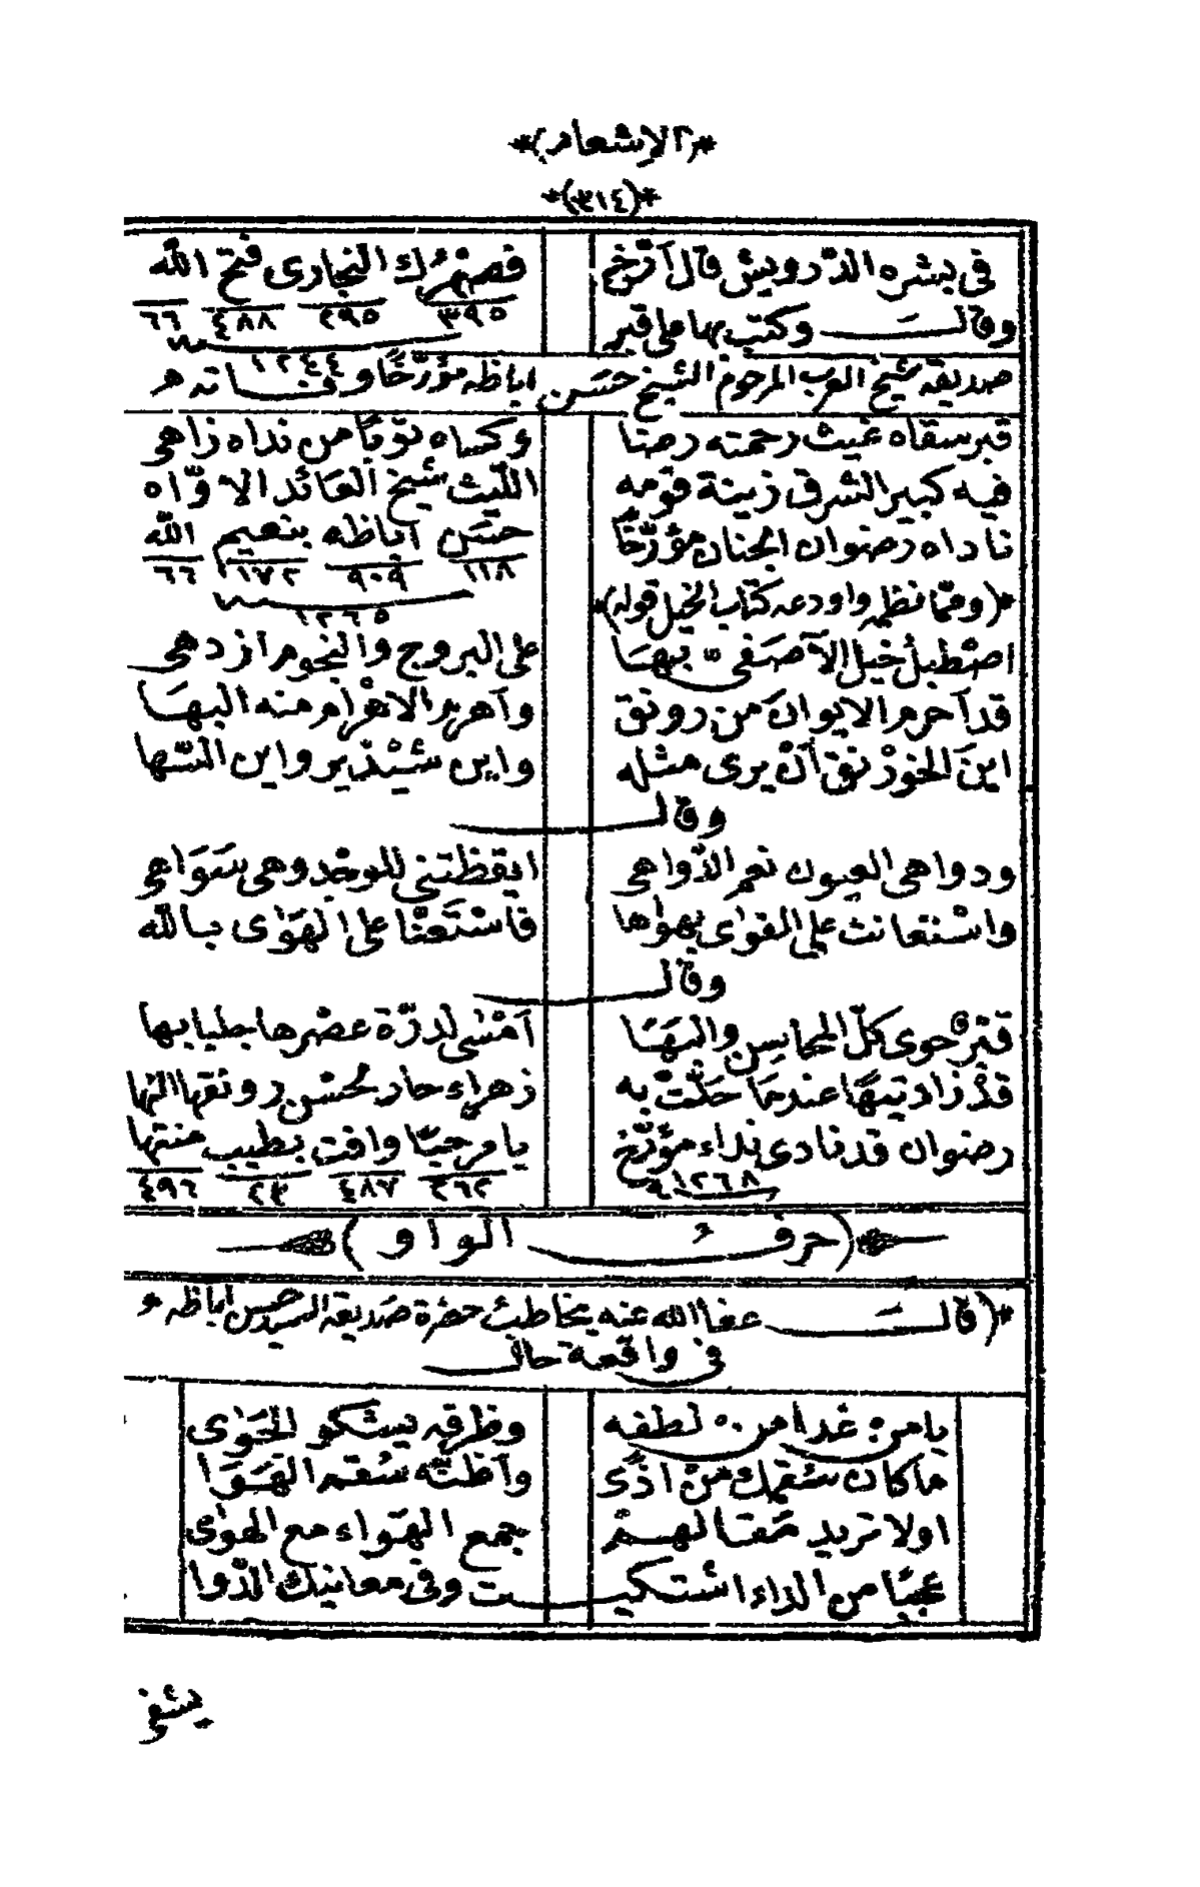 *(الاشعار)*
*(٣١٤)*
فى بشره الدّرويش قال أرّخ فصنهرك النجارى فتح الله
٣٩٥ ٢٩٥ ٤٨٨ ٦٦
١٢٤٤
وقالــــ وكتب بها على قبر
صديقه شيخ العرب المرحوم الشيخ حسَن اباظه مؤرّخًا وفـــاته
قبر سقاه غيث رحمته رضتا وكساه ثوبًا من نداه زاهى
فيه كبير الشرق زينة قومه الليث شيخ العائد الاوّاه
ناداه رضوان الجنان مؤرّخًا حسَن أباظه بنعيم الله
١١٨ ٩٠٩ ١٧٢ ٦٦
١٢٦٥
*(وممّا نظمه واودعه كتاب الخيل قوله)*
اصْطبلُ خيل الآصَفىّ بهَا على البروج والنجوم ازدهى
قد آحرم الايوان من رونق وآهرم الاهْرام منه البهَا
اينَ الخوَرْنق أنْ يرى مثله واين شيْذير واين السّها
وقالــــ
ودواهى العيون نعم الدّواهى ايقظتنى للوجْد وهى سَوَاهى
واسْتعانت على القوٰى بهواها فاسْتَعَنْا على الهَوٰى بالله
وقالــــ
قبْر حوى كلّ المحاسِن والبهَا آمْسٰى لدرّة عصْرها جلبابها
قدْ زاد تيهًا عندمَا حَلّتْ به زهراء حاد بحسْن رونقها النها
رضوان قد نادى نداء مؤرّخ يا مرحبًا وافت بطيب منتها
١٢٦٨ ٢٦٢ ٤٨٧ ٢٣ ٤٩٦
(حرفــــ الواو)
*(قالــــ عفا الله عنه يخاطبُ حضرة صديقه السيد حسن اباظه
فى واقعة حالــــ
يا من غدا من لطفه وظرفه يشكو الجَوٰى
ما كان سُقمك من اذًى وآظنّه سُقم الهَوَا
اولا تريد مَقتالهــمْ بجمع الهَواء مع الهوٰى
عجبًا من الداء اشتكيــت وفى معانيك الدّوا
يشفى